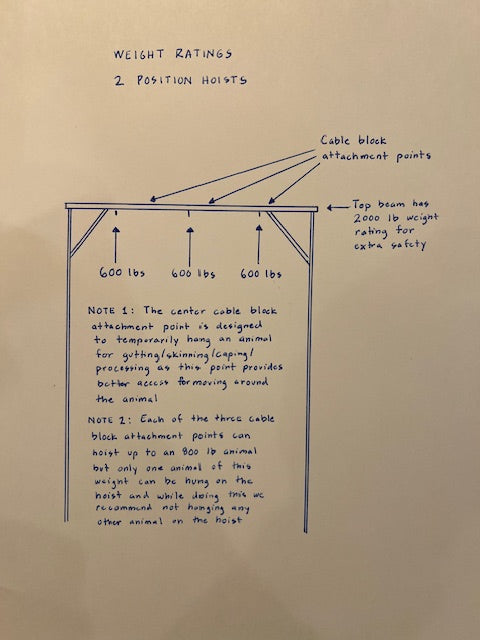 WEIGHT RATINGS
2 POSITION HOISTS
Cable block
attachment points
Top beam has
2000 lb weight
rating for
extra safety
600 lbs
600 lbs
600 lbs
NOTE 1: The center cable block
attachment point is designed
to temporarily hang an animal
for gutting/skinning/caping/
processing as this point provides
better access for moving around
the animal
NOTE 2: Each of the three cable
block attachment points can
hoist up to an 800 lb animal
but only one animal of this
weight can be hung on the
hoist and while doing this we
recommend not hanging any
other animal on the hoist